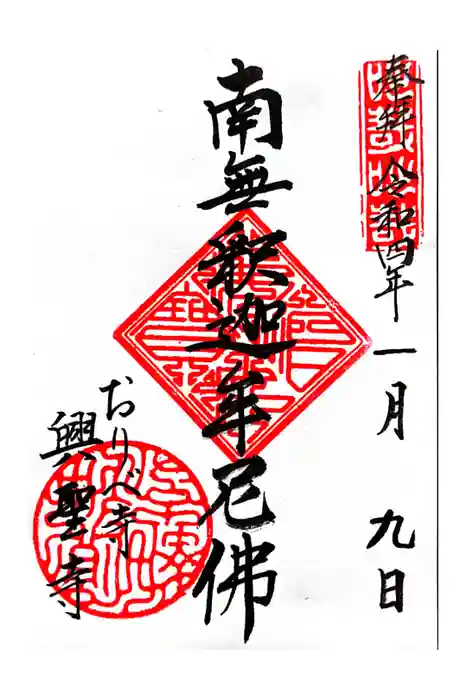 奉拜 令和四年一月九日
南無釈迦牟尼佛
おりべ寺
興聖寺